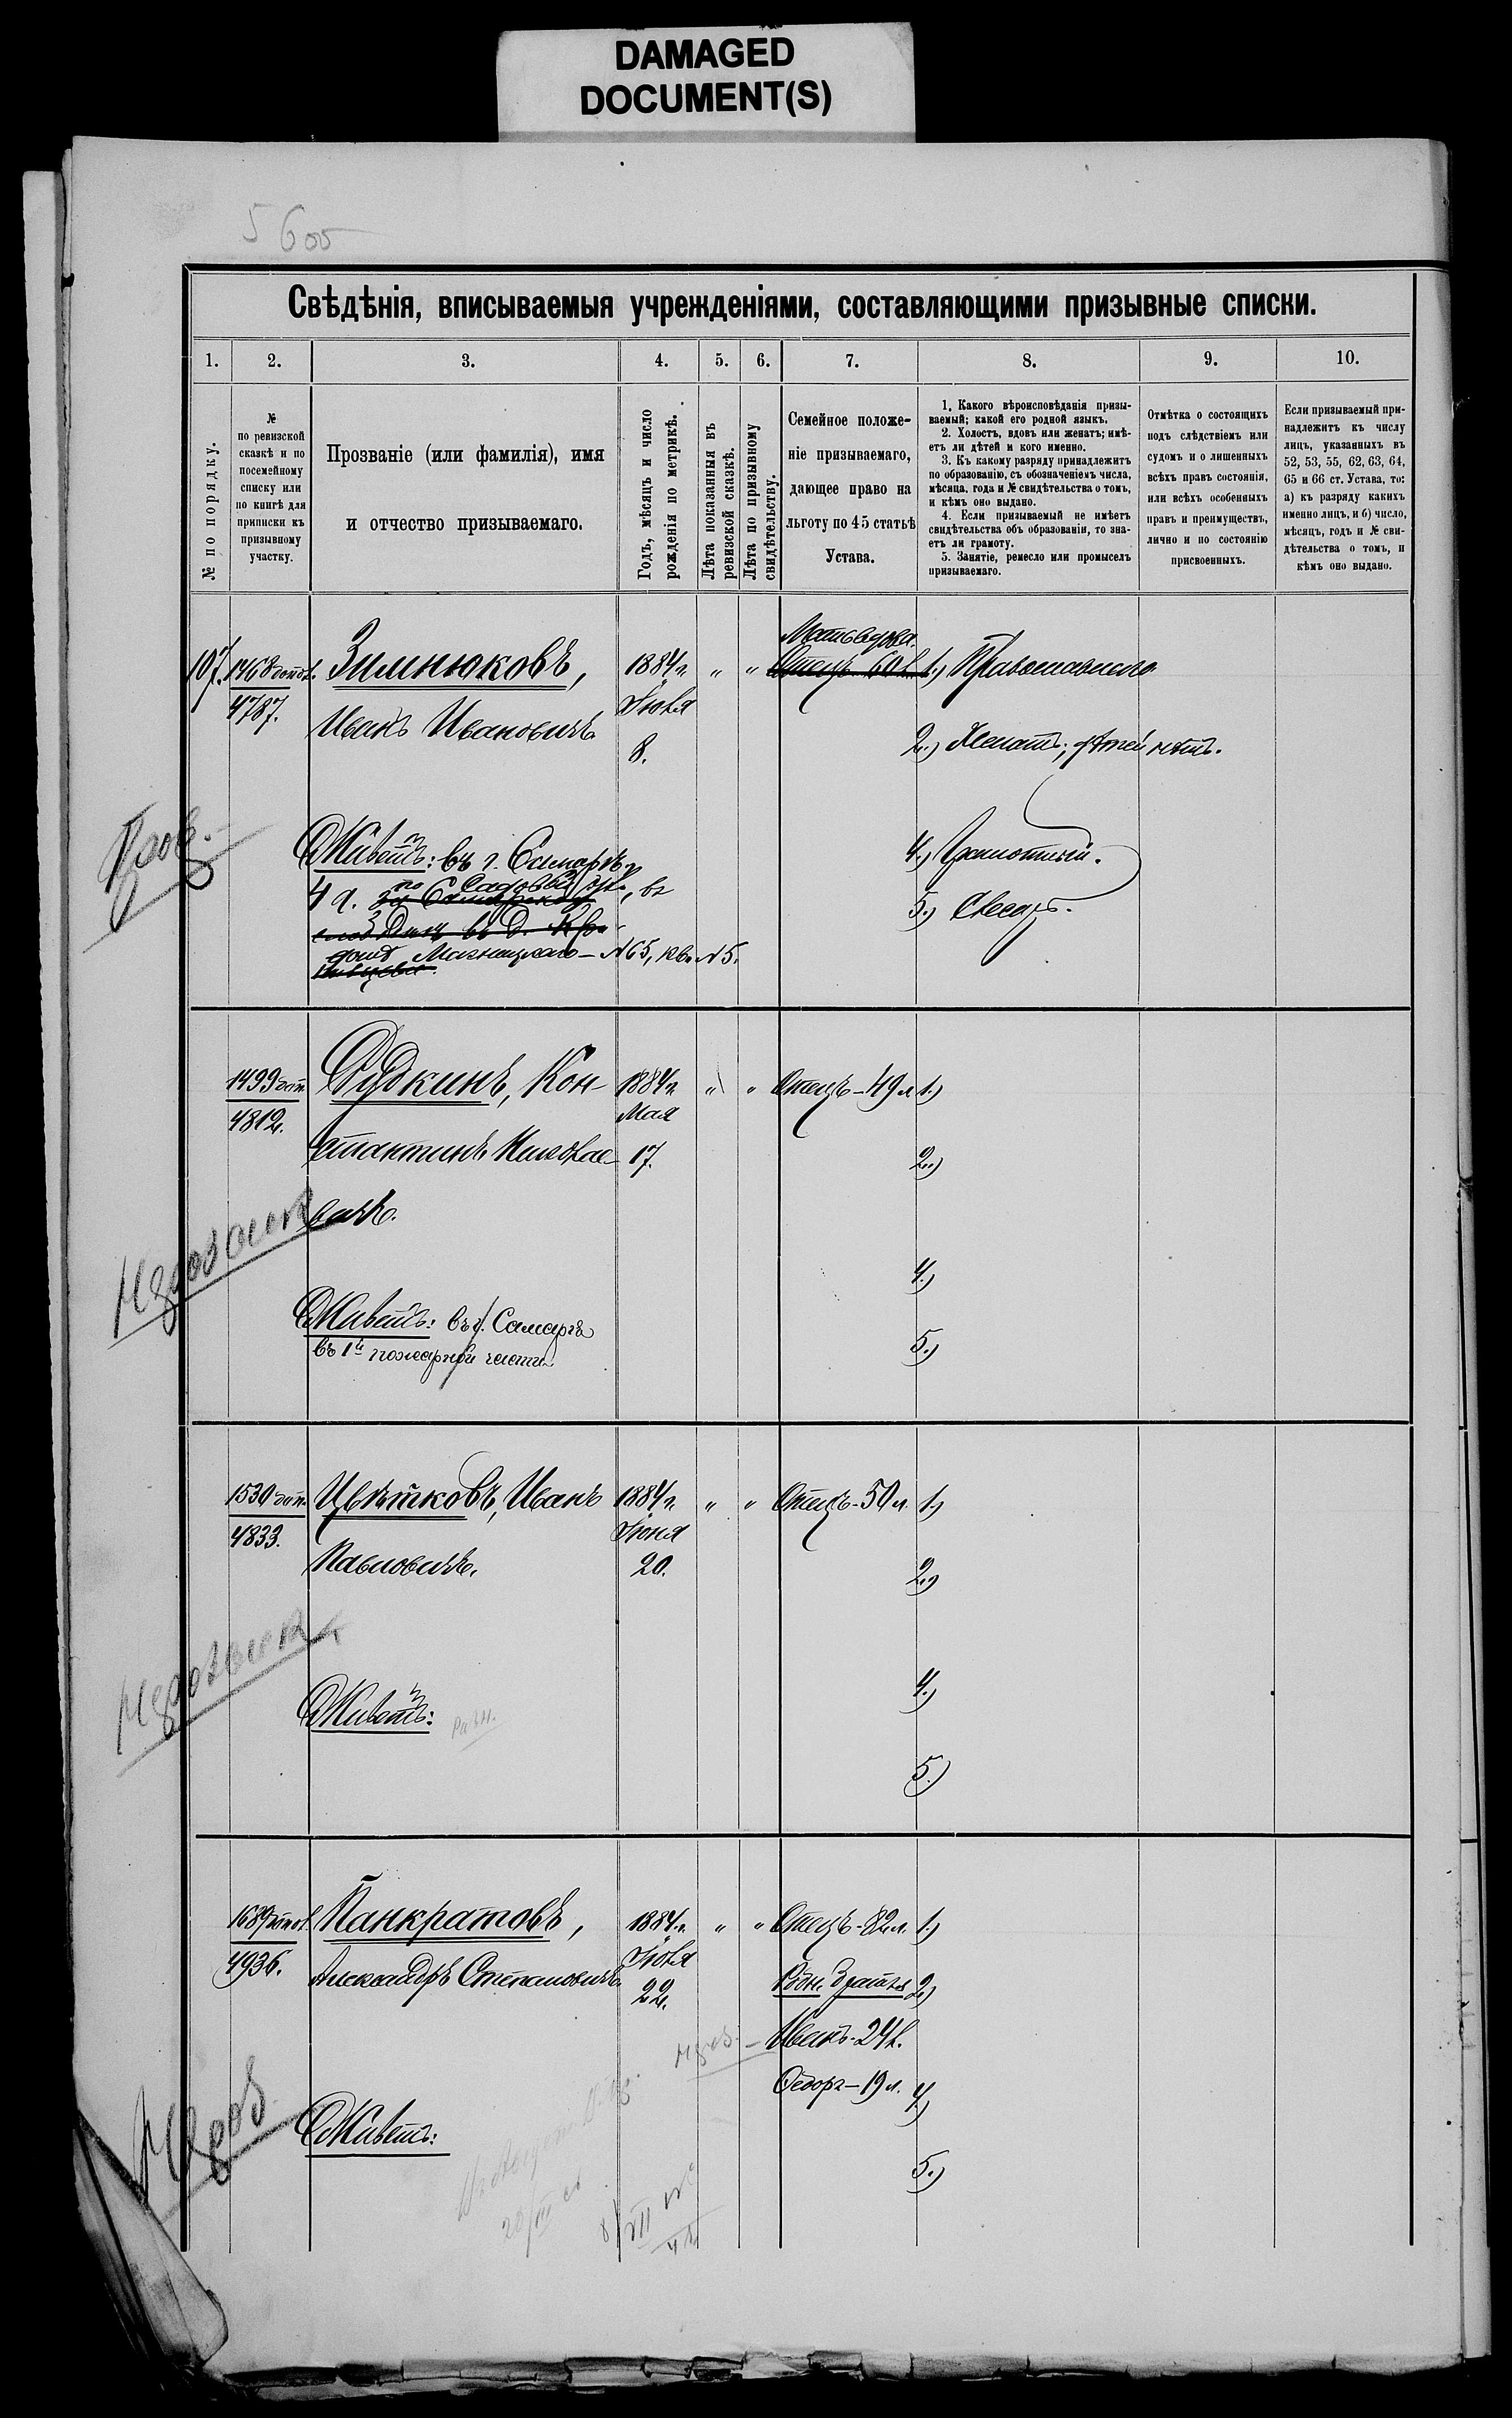 DAMAGED
DOCUMENT(S)
5600
Свѣдѣнія, вписываемыя учрежденіями, составляющими призывные списки.
1. 2. 3. 4. 5. 6. 7. 8. 9. 10.
№ по порядку.
№
по ревизской
сказкѣ и по
посемейному
списку или
по книгѣ для
приписки къ
призывному
участку.
Прозваніе (или фамилія), имя
и отчество призываемаго.
Годъ, мѣсяцъ и число
рожденія по метрикѣ.
Лѣта показанныя въ
ревизской сказкѣ.
Лѣта по призывному
свидѣтельству.
Семейное положе-
ніе призываемаго,
дающее право на
льготу по 45 статьѣ
Устава.
1. Какого вѣроисповѣданія призы-
ваемый; какой его родной языкъ.
2. Холостъ, вдовъ или женатъ; имѣ-
етъ ли дѣтей и кого именно.
3. Къ какому разряду принадлежитъ
по образованію, съ обозначеніемъ числа,
мѣсяца, года и № свидѣтельства о томъ,
и кѣмъ оно выдано.
4. Если призываемый не имѣетъ
свидѣтельства объ образованіи, то зна-
етъ ли грамоту.
5. Занятіе, ремесло или промыселъ
призываемаго.
Отмѣтка о состоящихъ
подъ слѣдствіемъ или
судомъ и о лишенныхъ
всѣхъ правъ состоянія,
или всѣхъ особенныхъ
правъ и преимуществъ,
лично и по состоянію
присвоенныхъ.
Если призываемый при-
надлежитъ къ числу
лицъ, указанныхъ въ
52, 53, 55, 62, 63, 64,
65 и 66 ст. Устава, то:
а) къ разряду какихъ
именно лицъ, и б) число,
мѣсяцъ, годъ и № сви-
дѣтельства о томъ, и
кѣмъ оно выдано.
Мать вдова.
107. 1468 Зимнюковъ, 1884 г. " " Отецъ 60 л. 1.) Православнаго
4787. Иванъ Ивановичъ. Іюля
8. 2.) Женатъ; дѣтей нѣтъ.
Живетъ: въ г. Самарѣ, 4.) Грамотный.
4 ч. по Садовой ул., въ
5.) Слесарь.
домѣ № 65, кв. № 5.
1499 Дудкинъ, Кон- 1884 г. " " Отецъ - 49 л. 1.)
4812. Мая
стантинъ 17. 2.)
4.)
Живетъ: въ г. Самарѣ
въ 1й пожарной части 5.)
1530 Цвѣтковъ, Иванъ 1884 г. " " Отецъ - 50 л. 1.)
4833. Іюня
Павловичъ. 20. 2.)
4.)
Живетъ:
5.)
1689 Панкратовъ, 1884 г. " " Отецъ - 82 л. 1.)
4936. Іюля
Александръ Степановичъ. 22. Родн. братья 2.)
Иванъ - 24 л.
Ѳедоръ - 19 л. 4.)
Живетъ:
5.)